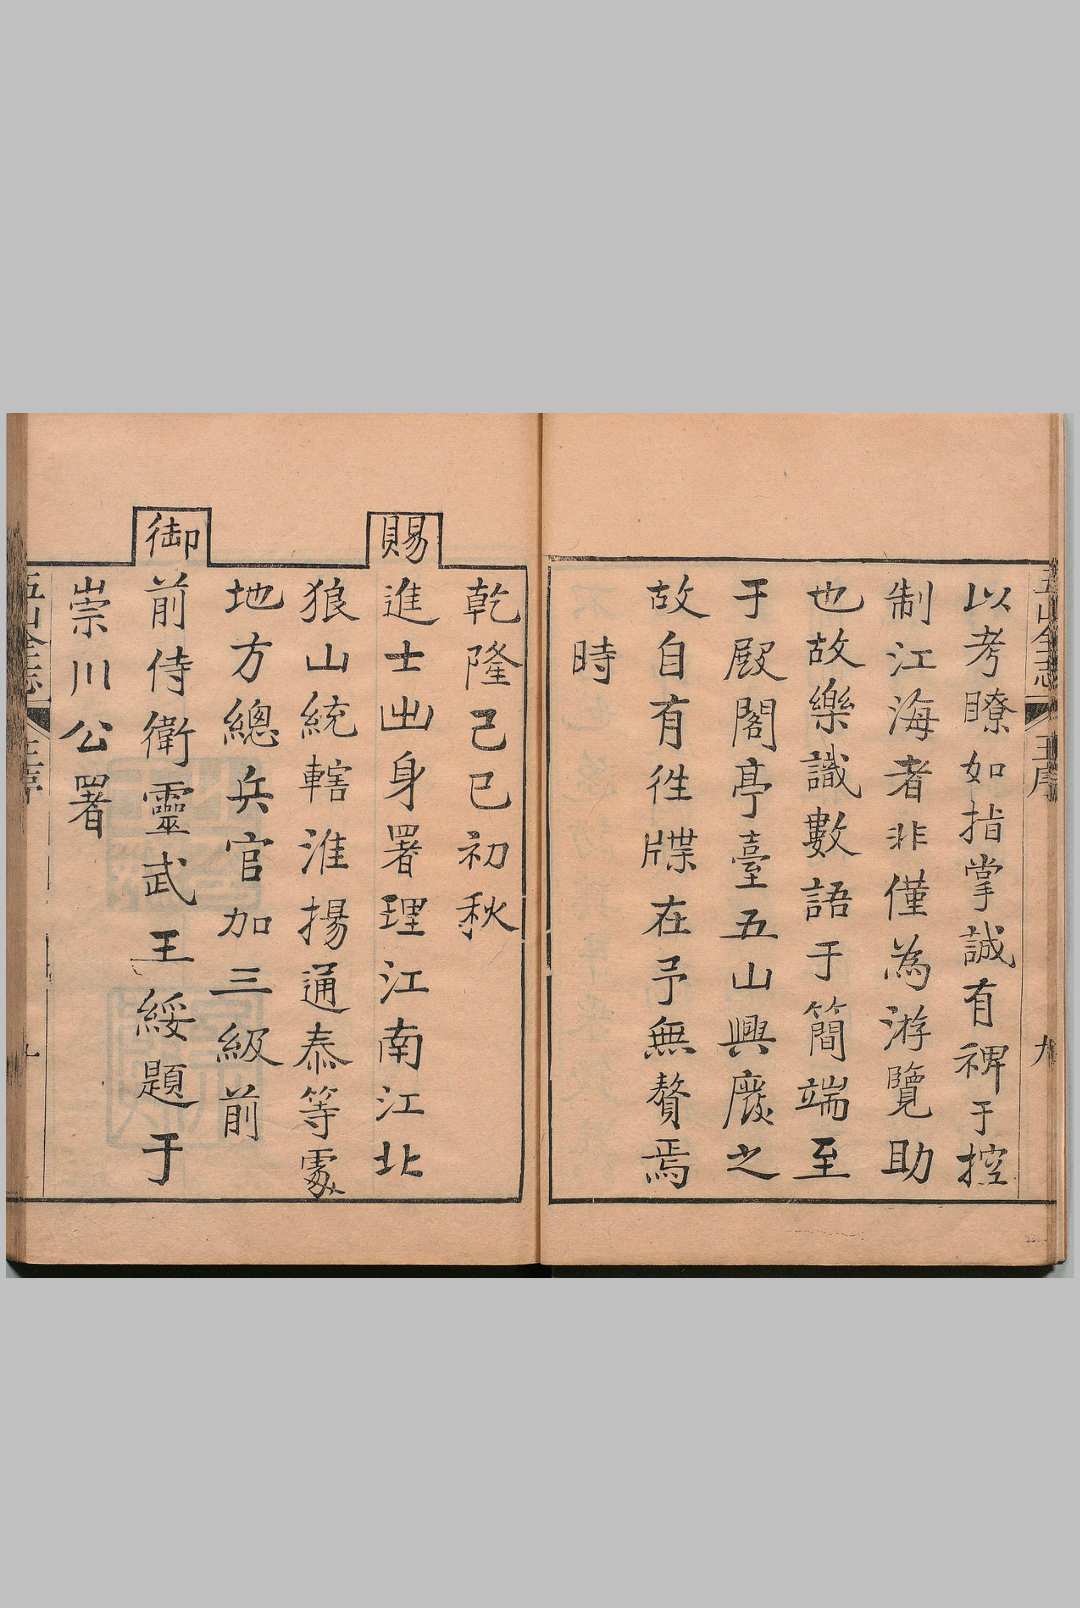 五山全志 王序 九
以考瞭如指掌誠有裨于控
制江海者非僅為游覽助
也故樂識數語于簡端至
于殿閣亭臺五山興廢之
故自有徃牒在予無贅焉
時
乾隆己巳初秋
賜
進士出身署理江南江北
狼山統轄淮揚通泰等處
地方總兵官加三級前
御
前侍衛靈武王綏題于
崇川公署
五山全志 王序 九